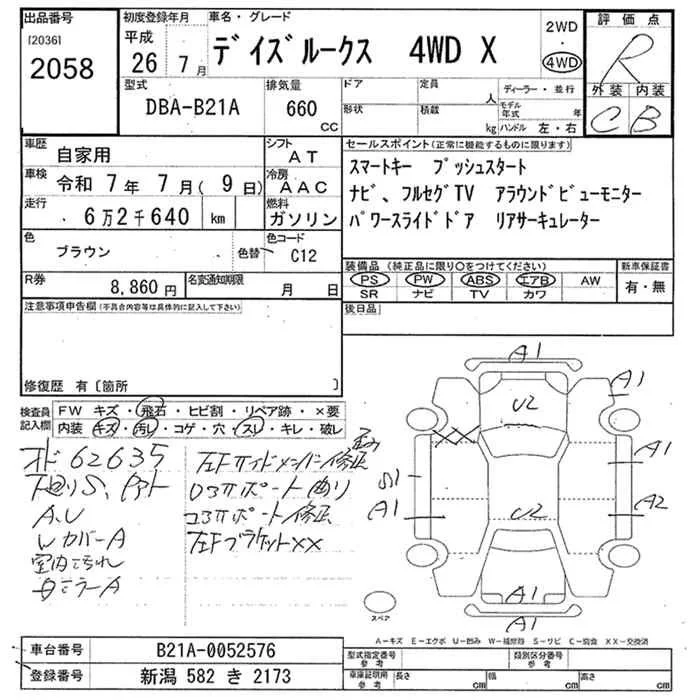 出品番号
[2036]
2058
初度登録年月
平成
26 7月
車名・グレード
デイズルークス 4WD X
2WD
・
4WD
評価点
R
外装 内装
C B
型式
DBA-B21A
排気量
660
CC
ドア
形状
定員
人
積載
kg
ディーラー・並行
モデル年式 年
ハンドル 左・右
車歴
自家用
シフト
AT
車検
令和 7年 7月( 9日)
冷房
AAC
走行
6万2千640 km
燃料
ガソリン
色
ブラウン
色替
色コード
C12
R券
8,860円
名変通知期限
月 日
セールスポイント(正常に機能するものに限ります)
スマートキー プッシュスタート
ナビ、フルセグTV アラウンドビューモニター
パワースライドドア リアサーキュレーター
装備品(純正品に限り○をつけてください)
PS PW ABS エアB AW
SR ナビ TV カワ
新車保証書
有・無
後日品
注意事項申告欄(不具合内容等は具体的に記入して下さい)
修復歴 有〔箇所 〕
検査員記入欄
FW キズ・飛石・ヒビ割・リペア跡・×要
内装・キズ・汚レ・コゲ・穴・スレ・キレ・破レ
62635
下廻りS、
A、U
カバーA
室内汚れ
ミラーA
左Fサイドメンバー修正
ポート曲り
ポート修正
左Fブラケット××
A1
A1
U2
A1
S1
A1
A2
U2
A1
A1
スペア
A-キズ E-エクボ U-凹み W-補修跡 S-サビ C-腐食 XX-交換済
車台番号
B21A-0052576
登録番号
新潟 582 き 2173
型式指定番号
参考
類別区分番号
参考
車庫証明用
参考
長さ cm
幅 cm
高さ cm